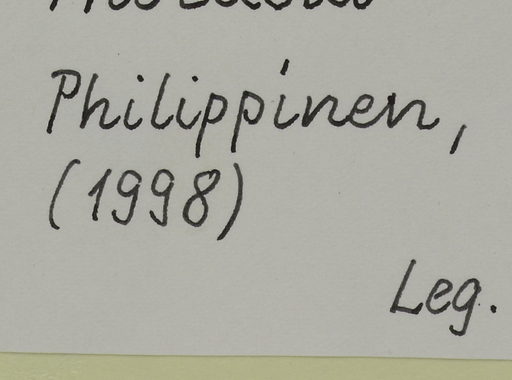 Philippinen,
(1998)
Leg.